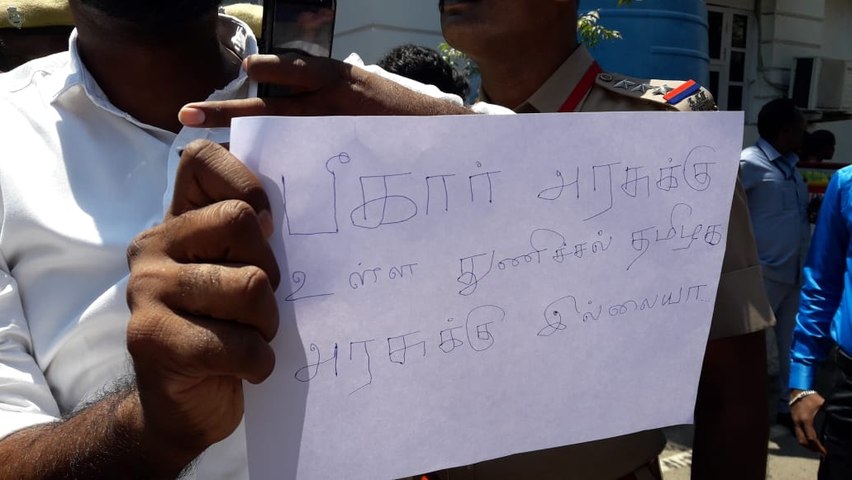 பீகார் அரசுக்கு
உள்ள துணிச்சல் தமிழக
அரசுக்கு இல்லையா